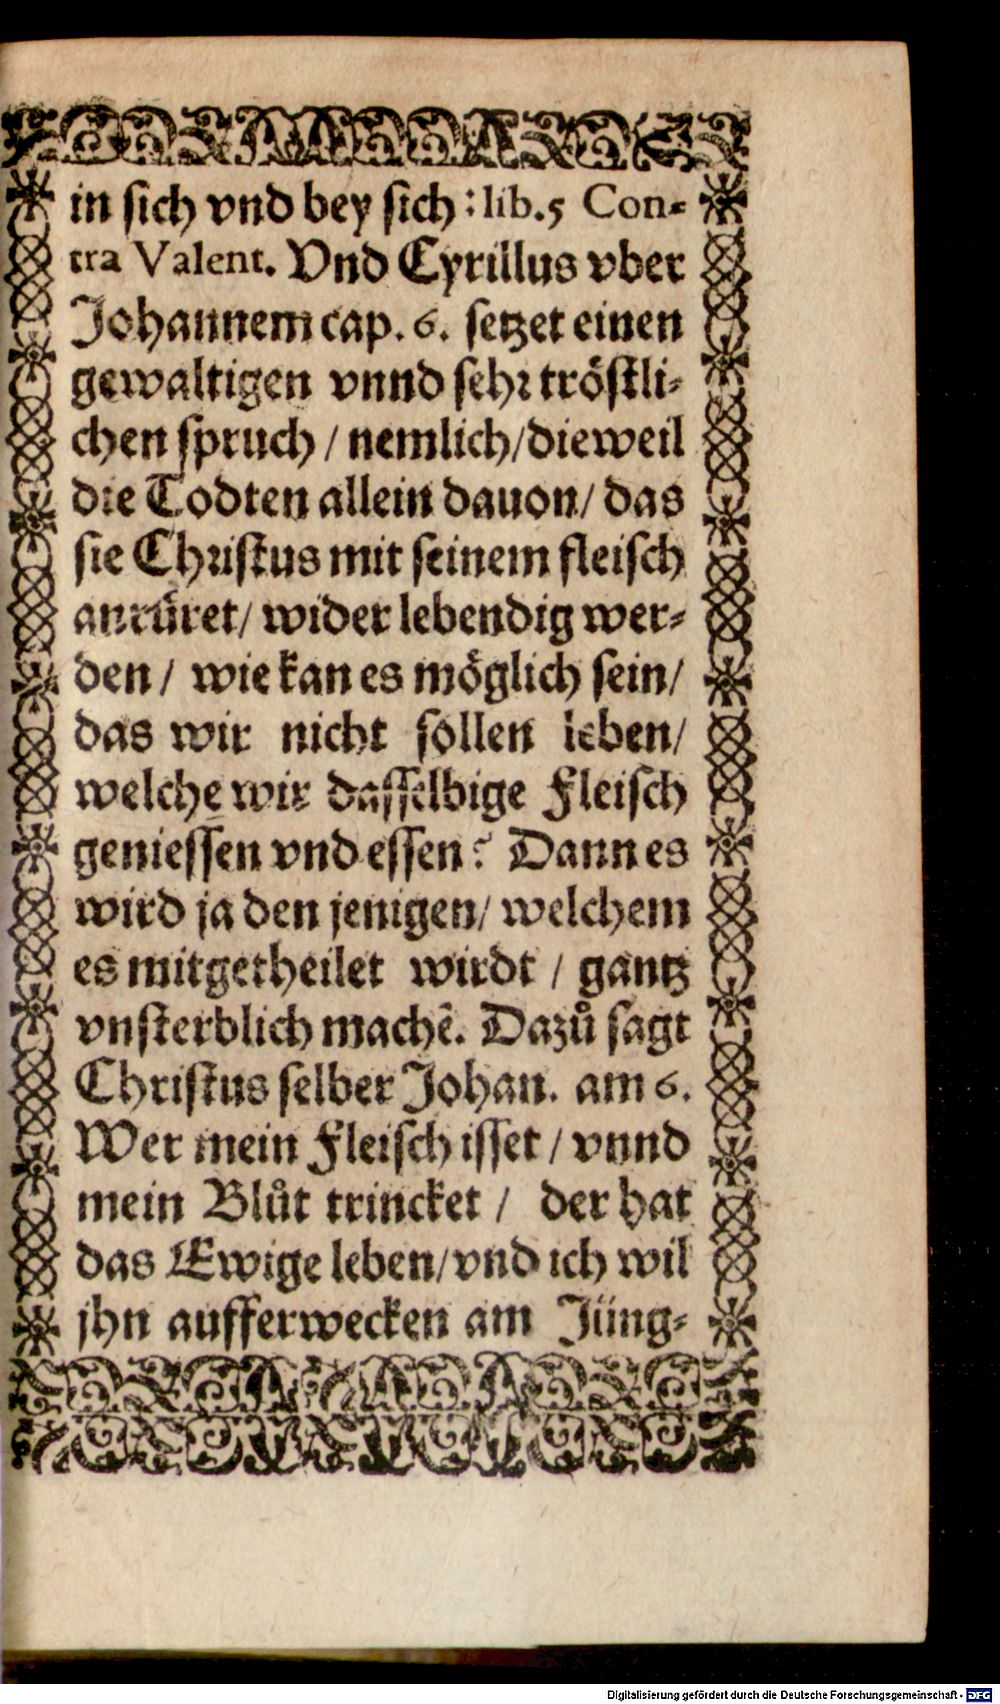 in sich vnd bey sich: lib.5 Con-
tra Valent. Vnd Cyrillus vber
Johannem cap. 6. setzet einen
gewaltigen vnnd sehr tröstli-
chen spruch / nemlich/dieweil
die Todten allein dauon/ das
sie Christus mit seinem fleisch
anrüret/ wider lebendig wer-
den / wie kan es möglich sein/
das wir nicht sollen leben/
welche wir dasselbige Fleisch
geniessen vnd essen? Dann es
wird ja den jenigen/ welchem
es mitgetheilet wirdt / gantz
vnsterblich machẽ. Dazů sagt
Christus selber Johan. am 6.
Wer mein Fleisch isset / vnnd
mein Blůt trincket / der hat
das Ewige leben/vnd ich wil
jhn aufferwecken am Jüng-
Digitalisierung gefördert durch die Deutsche Forschungsgemeinschaft - DFG